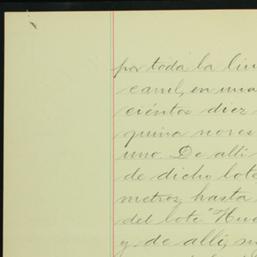 por toda la lin
carril, en una
cientos diez
quina nores
uno. De alli
de dicho lote
metros, hasta
del lote "Hue
y de alli, su